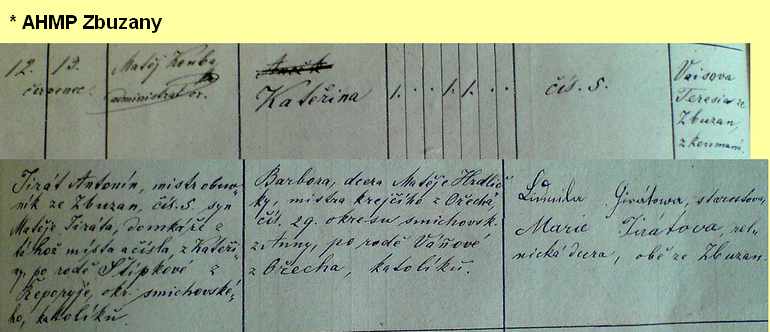 * AHMP Zbuzany
12. 13.
července.
Matěj Kouba
administrator.
Kateřina
1. . . 1. 1. . .
čís. 5.
Vaisova
Teresie ze
Zbuzan,
zkoumaná.
Jirát Antonín, mistr obuv-
ník ze Zbuzan, čís. 5, syn
Matěje Jiráta, domkáře z
téhož místa a čísla, z Kateři-
ny, po rodě Štípkové z
Řeporyje, okr. smíchovské-
ho, katolíků.
Barbora, dcera Matěje Hrdlič-
ky, mistra krejčího z Ořecha,
čís. 29. okresu smíchovsk.
z Anny, po rodě Vaňové
z Ořecha, katolíků.
Ludmila Jirátova, starostova,
Marie Jirátova, rol-
nická dcera, obě ze Zbuzan.